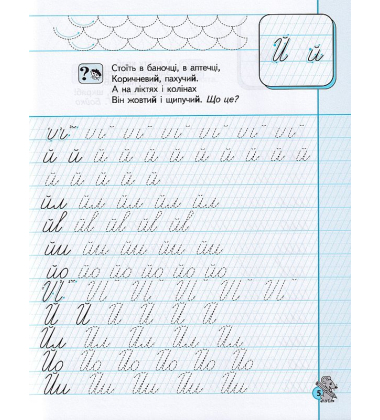 Й й
Стоїть в баночці, в аптечці,
Коричневий, пахучий.
А на ліктях і колінах
Він жовтий і щипучий. Що це?
й й й й й й й й й й й
й й й й й
йл йл йл йл йл
йв йв йв йв
йи йи йи йи йи
йо йо йо йо йо йо
Й Й Й Й Й Й
Йл Йл Йл Йл Йл
Йо Йо Йо Йо Йо
Йи Йи Йи Йи Йи
5